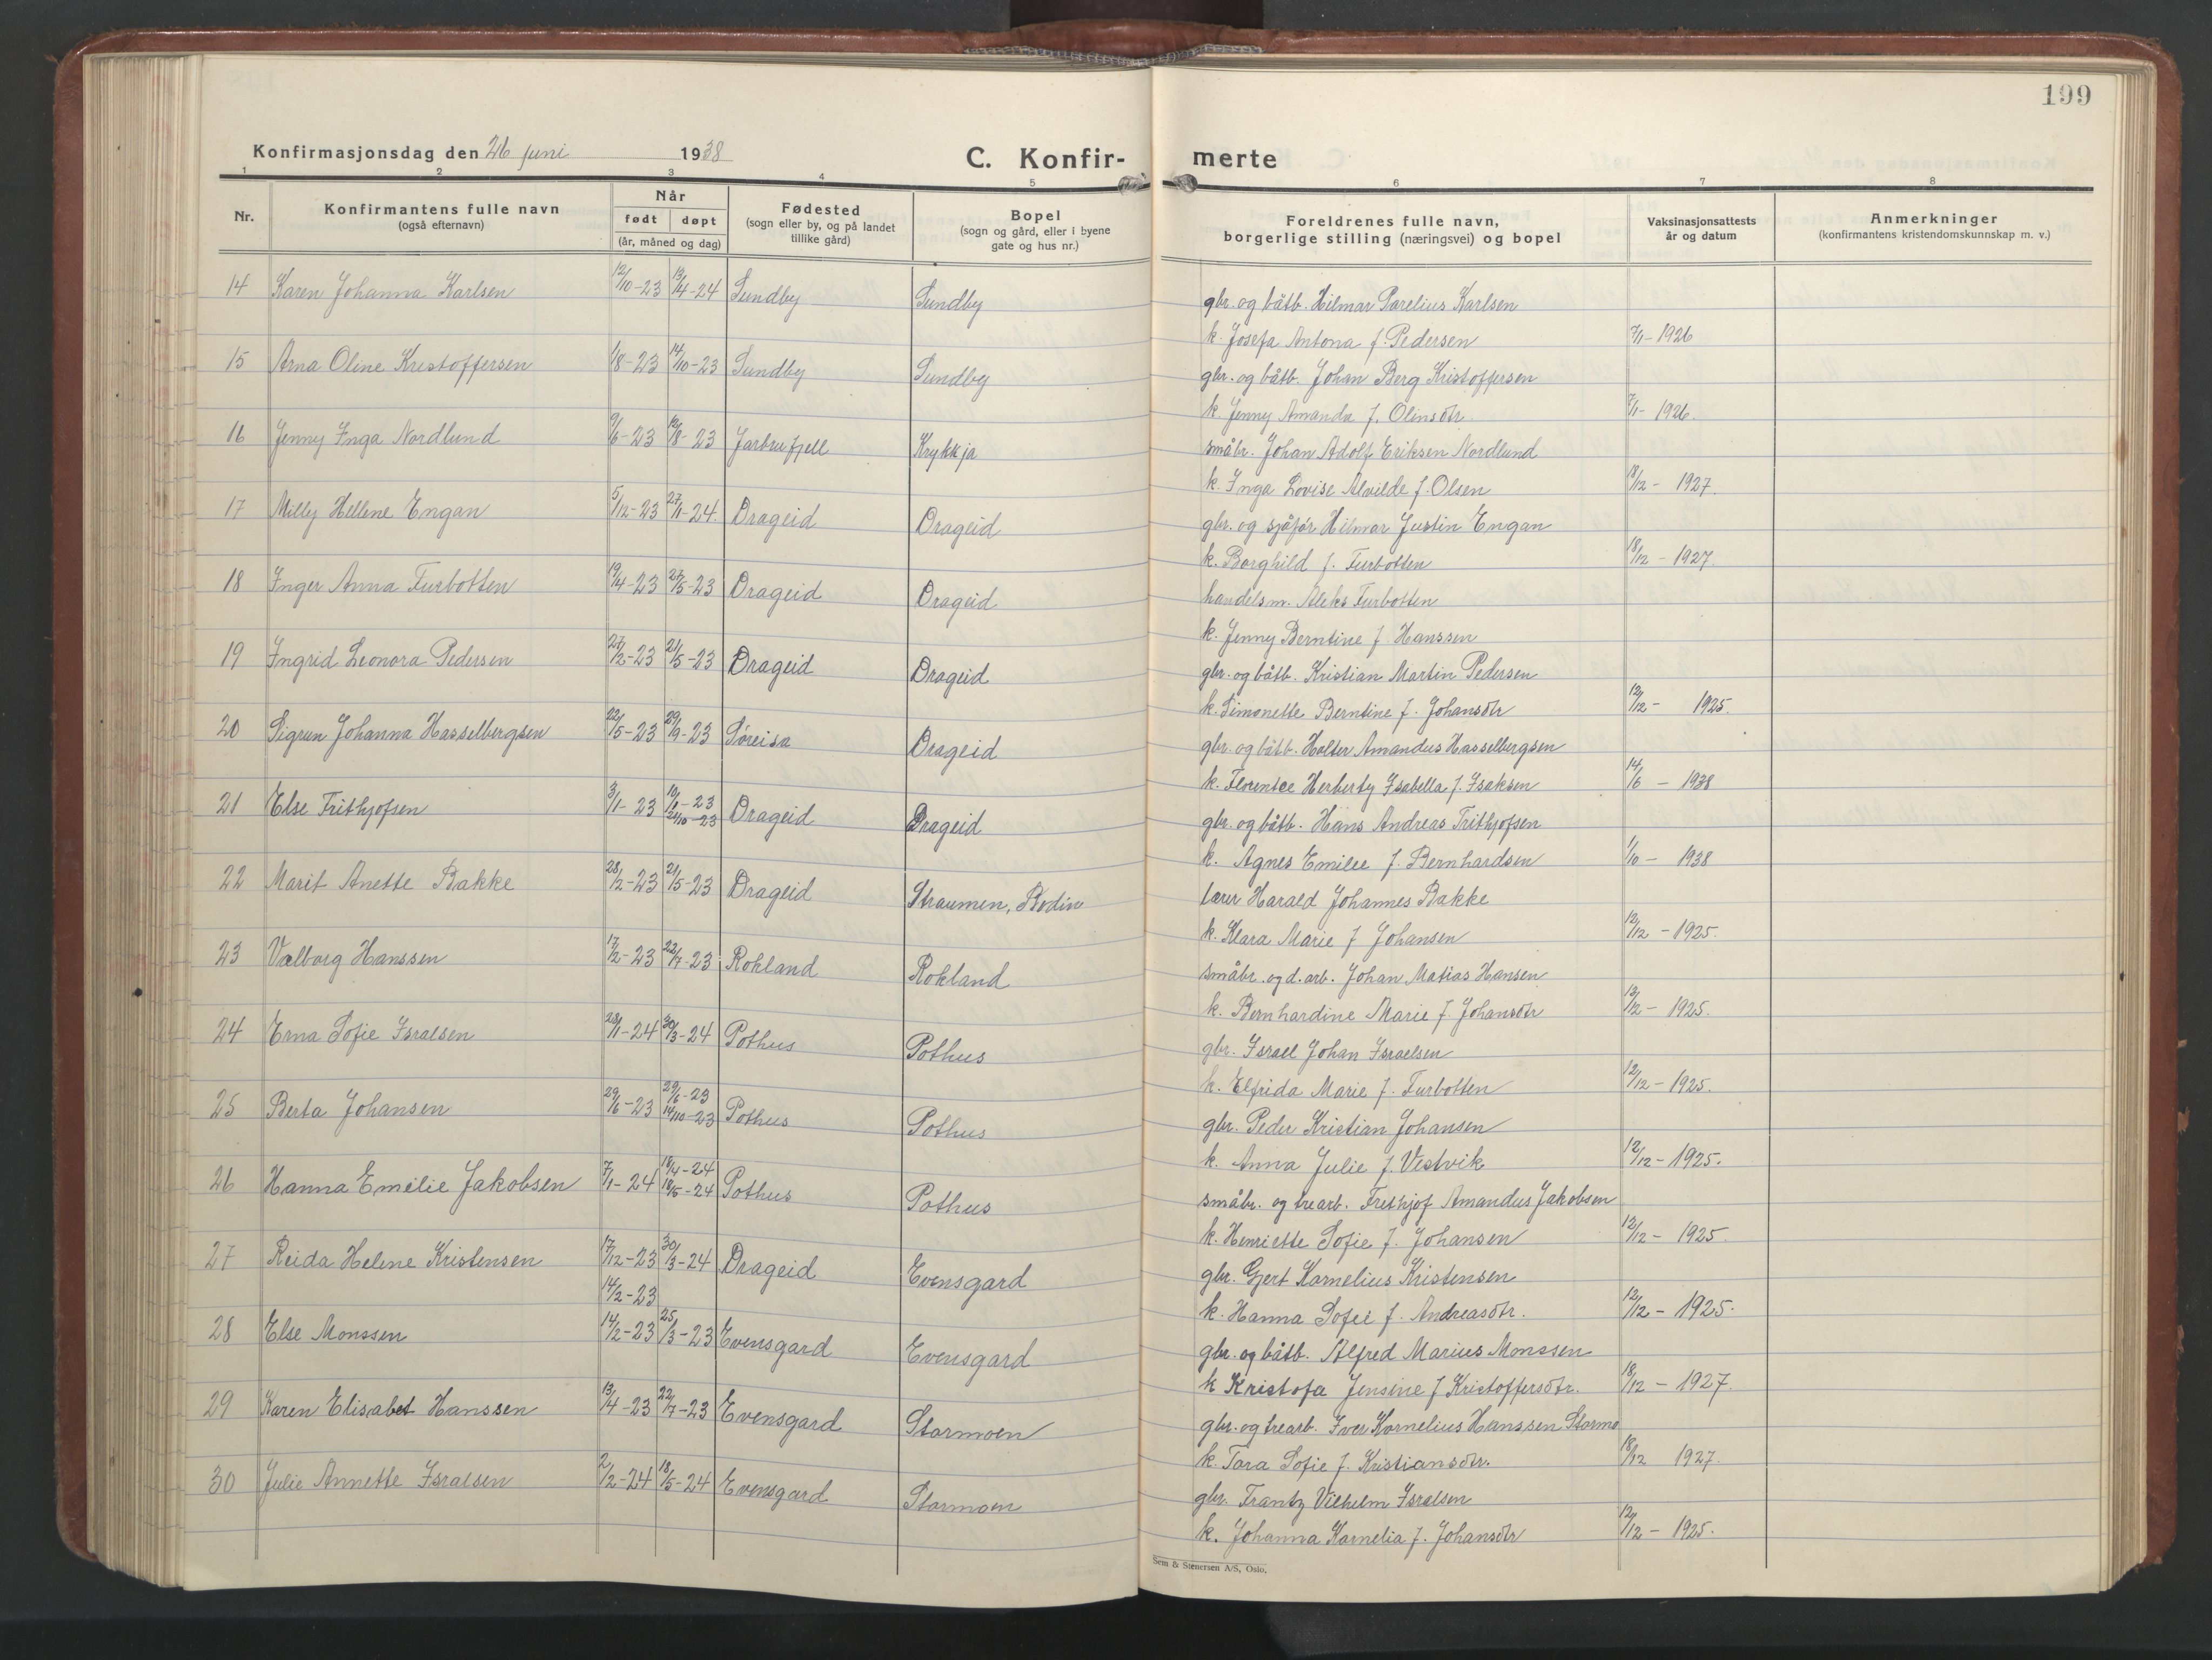 199
Konfirmasjonsdag den 26 juni 1938
C. Konfir- merte
1 2 3 4 5 6 7 8
Nr.
Konfirmantens fulle navn
(også efternavn)
Når
født døpt
(år, måned og dag)
Fødested
(sogn eller by, og på landet
tillike gård)
Bopel
(sogn og gård, eller i byene
gate og hus nr.)
Foreldrenes fulle navn,
borgerlige stilling (næringsvei) og bopel
Vaksinasjonsattests
år og datum
Anmerkninger
(konfirmantens kristendomskunnskap m. v.)
14 Karen Johanna Karlsen 12/10-23 13/4-24 Sundby Sundby gbr. og båtb. Hilmar Parelius Karlsen
k. Josefa Antona f. Pedersen 7/1- 1926
15 Arna Oline Kristoffersen 1/8-23 14/10-23 Sundby Sundby gbr. og båtb. Johan Berg Kristoffersen
k. Jenny Amanda f. Olinsdtr. 7/1- 1926.
16 Jenny Inga Nordlund 9/6-23 12/8-23 Jarbrufjell Krykkja småbr. Johan Adolf Eriksen Nordlund
k. Inga Lovise Alvilde f. Olsen 18/12- 1927.
17 Milly Hellene Engan 5/12-23 27/1-24. Drageid Drageid gbr. og sjåfør Hilmar Justin Engan
k. Borghild f. Furbotten 18/12 - 1927.
18 Inger Anna Furbotten 19/4-23 27/5-23 Drageid Drageid handelsm. Aleks Furbotten
k. Jenny Berntine f. Hanssen
19 Ingrid Leonora Pedersen 27/2-23 21/5-23 Drageid Drageid gbr. og båtb. Kristian Martin Pedersen
k. Simonette Berntine f. Johansdtr 12/12- 1925.
20 Sigrun Johanna Hasselbergsen 22/5-23 29/9-23 Søreisa Drageid gbr. og båtb. Halter Amandus Hasselbergsen
k. Florentce Herberty Isabella f. Isaksen 14/6 - 1938
21 Else Frithjofsen 3/1-23 -23 Drageid Drageid gbr. og båtb. Hans Andreas Frithjofsen
-23
k. Agnes Emilee f. Bernhardsen 1/10 - 1938
22 Marit Anette Bakke 28/2-23 21/5-23 Drageid Straumen, Bodin lærer Harald Johannes Bakke
k. Klara Marie f Johansen 12/12 - 1925.
23 Valborg Hanssen 17/2-23 22/7-23 Rokland Rokland småbr. og d. arb. Johan Matias Hansen
k. Bernhardine Marie f. Johansdtr 12/12- 1925.
24 Erna Sofie Israelsen 28/1-24 30/3-24 Pothus Pothus gbr. Israel Johan Israelsen
k. Elfrida Marie f. Furbotten 12/12- 1925.
25 Berta Johansen 29/6-23 29/6-23 Pothus Pothus gbr. Peder Kristian Johansen
14/10-23
k. Anna Julie f. Vestvik 12/12- 1925.
26 Hanna Emelie Jakobsen 7/1-24 18/4-24 Pothus Pothus småbr. og trearb. Frithjof Amandus Jakobsen
18/5-24
k. Henriette Sofie f. Johansen 12/12- 1925.
27 Reida Helene Kristensen 17/12-23 30/3-24 Drageid Evensgard gbr. Gjert Kornelius Kristensen
14/2-23
k. Hanna Sofie f. Andreasdtr. 12/12- 1925.
28 Else Monssen 14/2-23 25/3-23 Evensgard Evensgard gbr. og båtb. Alfred Marius Monssen
k Kristofa Jensine f Kristoffersdtr. 18/12 - 1927.
29 Karen Elisabet Hanssen 13/4-23 22/7-23 Evensgard Stormoen gbr. og trearb. Iver Kornelius Hanssen Stormo
k. Tora Sofie f. Kristiansdtr. 18/12 1927.
30 Julie Annette Israelsen 2/2-24 18/5-24 Evensgard Stormoen gbr. Frantz Vilhelm Israelsen
k. Johanna Kornelia f. Johansdtr 12/12- 1925.
Sem & Stenersen A/S, Oslo.